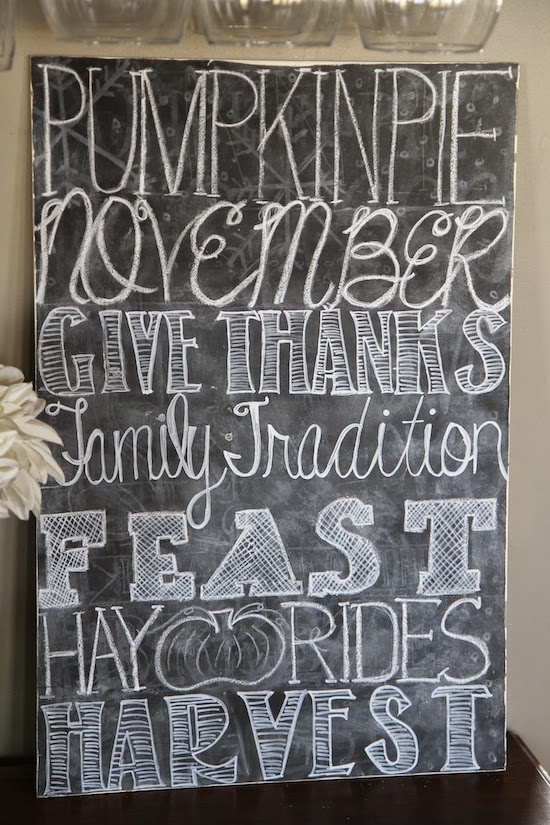 PUMPKIN PIE
NOVEMBER
GIVE THANKS
Family Tradition
FEAST
HAY RIDES
HARVEST